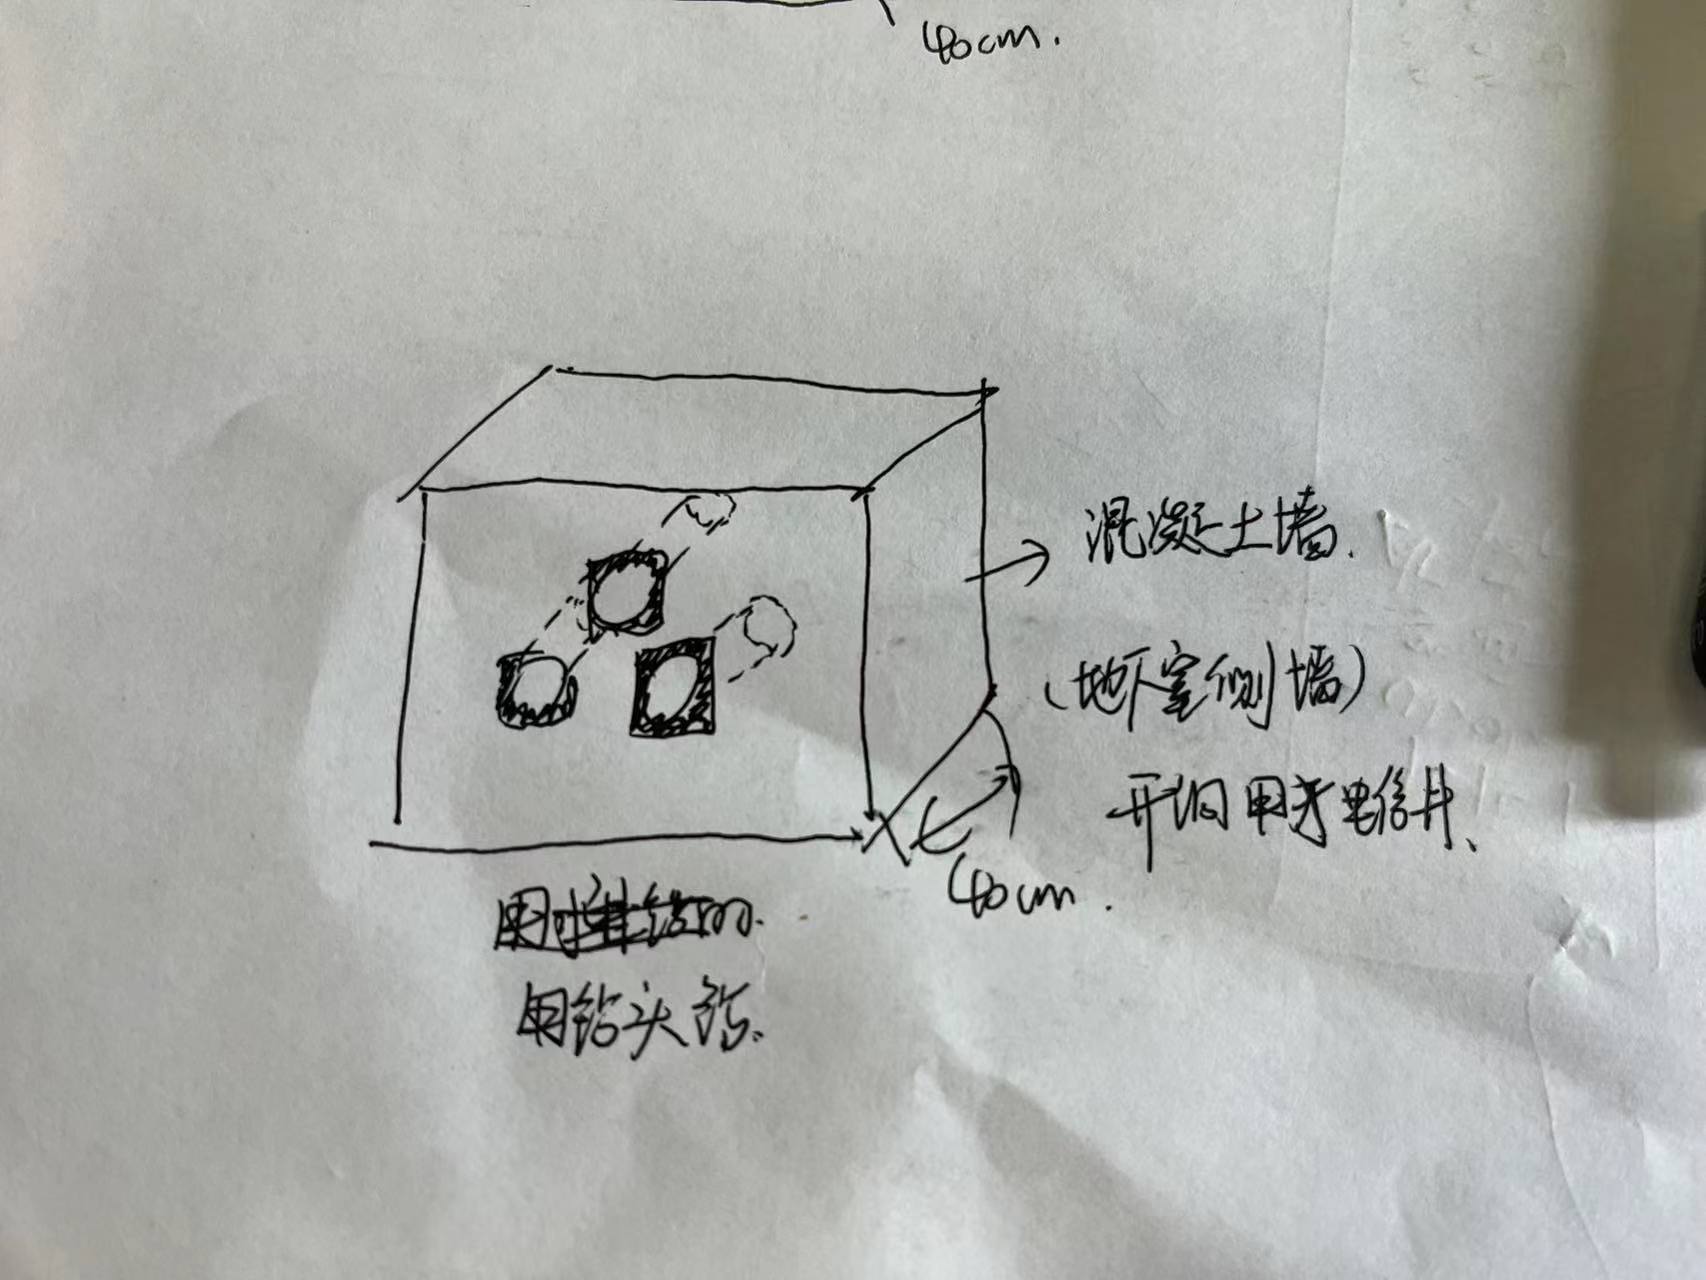 40cm.
混凝土墙.
(地下室侧墙)
开洞用于电信井、
40cm.
用钻头钻.